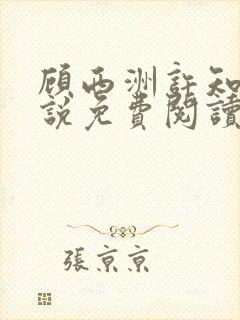 顾西洲許知
說免費閱讀
張京京